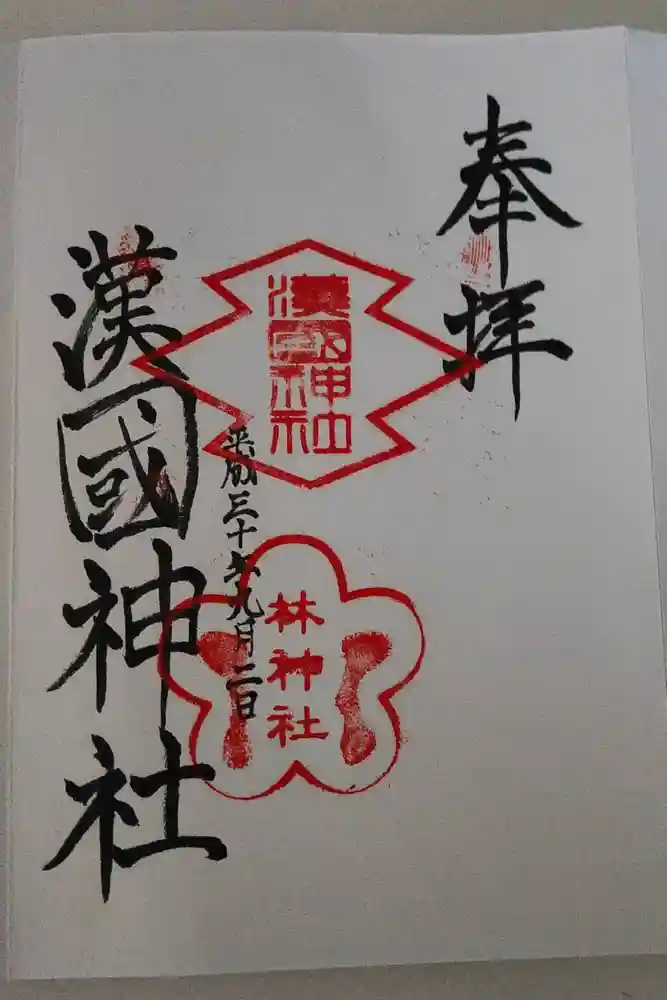 奉拝
漢國神社
平成三十年九月二日
漢國神社
林神社